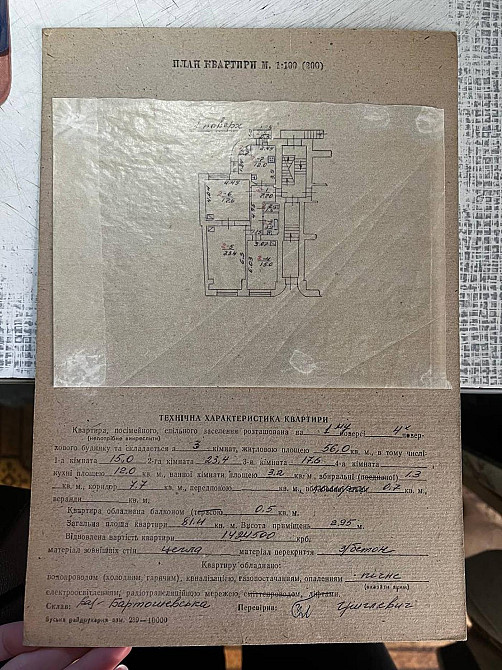 ПЛАН КВАРТИРИ М. 1:100 (200)
1 поверх
4.49
2-6
17.6
2-5
23.4
6.03
3.02
2-4
15.0
ТЕХНІЧНА ХАРАКТЕРИСТИКА КВАРТИРИ
Квартира, посімейного, спільного заселення розташована на 1му поверсі 4х повер-
(непотрібне викреслити)
хового будинку та складається з 3 кімнат, житловою площею 56,0 кв. м., в тому числі:
1-а кімната 15,0 2-га кімната 23,4 3-я кімната 17,6 4-а кімната
кухні площею 12.0 кв. м., ванної кімнати площею 3.2 кв. м., вбиральні (поєднаної) 1.3
кв. м., коридор 7.7 кв. м., передпокою кв. м., 0.7 кв. м.,
веранди кв. м.
Квартира обладнана балконом (терасою) 0.5 кв. м.
Загальна площа квартири 81.4 кв. м. Висота приміщень 2,95 м.
Відновлена вартість квартири 1424500 крб.
матеріал зовнішніх стін цегла матеріал перекриття з/бетон
Квартиру обладнано:
водопроводом (холодним, гарячим), каналізацією, газопостачанням, опаленням пічне
(вказати яким)
електроосвітленням, радіотрансляційною мережею, сміттєпроводом, ліфтами.
Склав: Бартошевська Перевірив:
Буськ райдрукарня зам. 219—10000